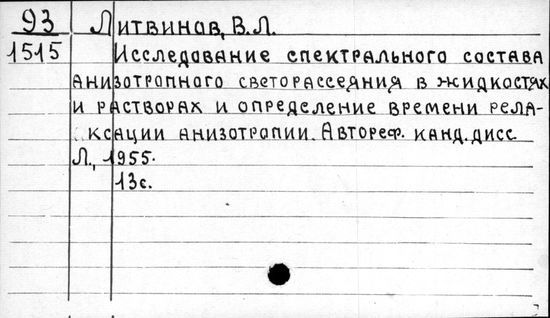 93 Литвинов, В.Л.
1515 Исследование спектрального состава
анизотропного светорассеяния в жидкостях
и растворах и определение времени рела-
ксации анизотропии. Автореф. канд. дисс
Л., 1955.
13с.